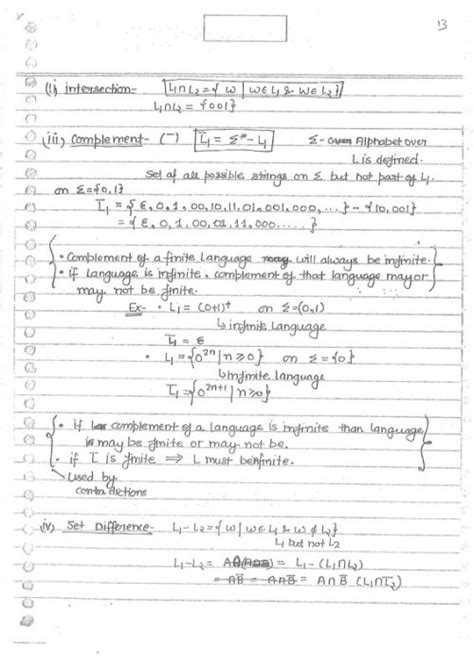 13
(ii) intersection- L₁∩L₂ = { w | w∈L₁ & w∈L₂ }
L₁∩L₂ = {001}
(iii) Complement- (‾) L̅₁ = Σ* - L₁ Σ - Alphabet over
L is defined.
Set of all possible strings on Σ but not part of L₁.
on Σ={0,1}
L̅₁ = { ε, 0, 1, 00, 10, 11, 01, 001, 000, ...} - {10, 001}
= { ε, 0, 1, 00, 01, 11, 000.....}
• Complement of a finite language will always be infinite.
• if Language is infinite, complement of that language may or
may not be finite.
Ex- • L₁ = (0+1)⁺ on Σ=(0,1)
↳ infinite Language
L̅₁ = ε
• L₁ = {0²ⁿ | n≥0} on Σ={0}
↳ Infinite Language
L̅₁ = {0²ⁿ⁺¹ | n≥0}
• if complement of a language is infinite than language
may be finite or may not be.
• if L̅ is finite ⇒ L must be infinite.
↳ Used by
contradictions
iv) Set Difference- L₁-L₂ = { w | w∈L₁ & w∉L₂ }
L₁ but not L₂
L₁-L₂ = = L₁ - (L₁∩L₂)
= AB̅ = A∩B̅ = A∩B̅ (L₁∩L̅₂)